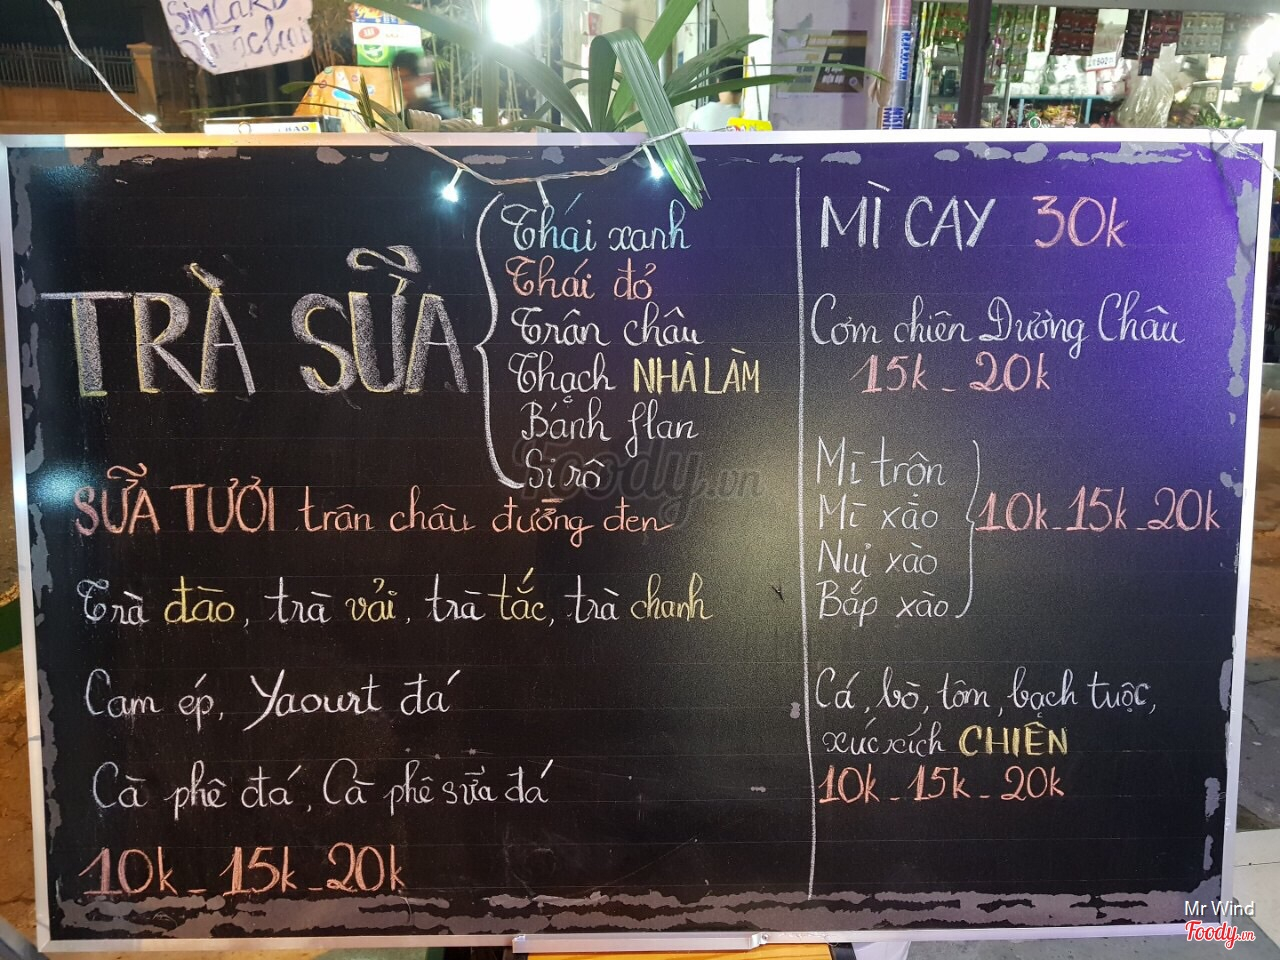 SIM CARD
TRÀ SỮA
Thái xanh
Thái đỏ
Trân châu
Thạch NHÀ LÀM
Bánh flan
Si rô
SỮA TƯƠI trân châu đường đen
Trà đào, trà vải, trà tắc, trà chanh
Cam ép, Yaourt đá
Cà phê đá, Cà phê sữa đá
10k - 15k - 20k
MÌ CAY 30k
Cơm chiên Dương Châu
15k - 20k
Mì trộn
Mì xào
Nui xào
Bắp xào
10k - 15k - 20k
Cá, bò, tôm, bạch tuộc,
xúc xích CHIÊN
10k - 15k - 20k
Foody.vn
Mr Wind
Foody.vn